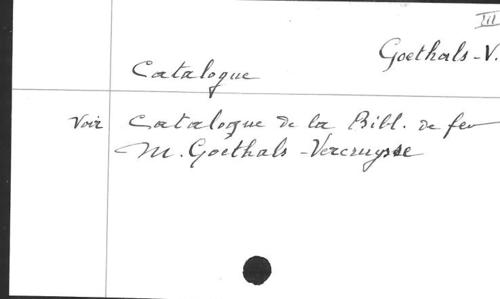 III
Goethals-V.
Catalogue
Voir Catalogue de la Bibl. de feu
M. Goethals-Vercruysse